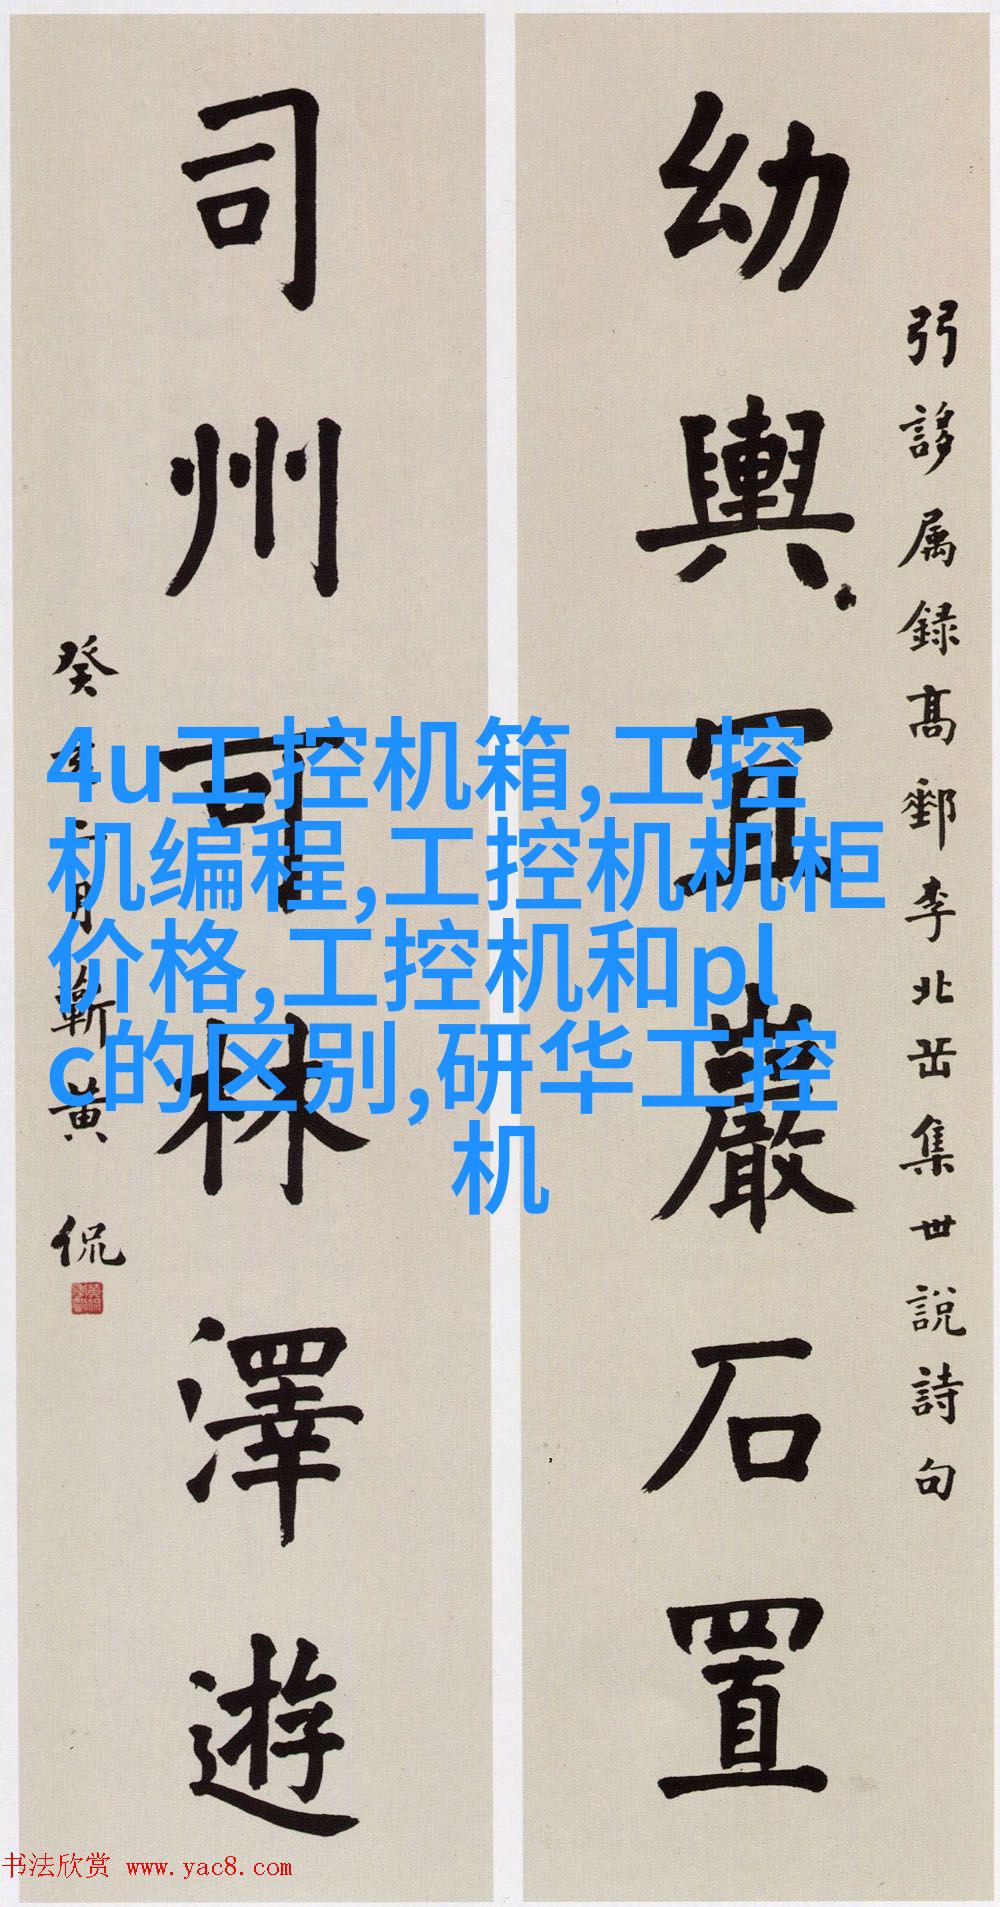 幼輿宜巖石置
弜誃属録高郵李北岳集世說詩句
司州可林澤遊
癸亥六月蘄黄侃
4u工控机箱,工控
机编程,工控机机柜
价格,工控机和pl
c的区别,研华工控
机
书法欣赏 www.yac8.com